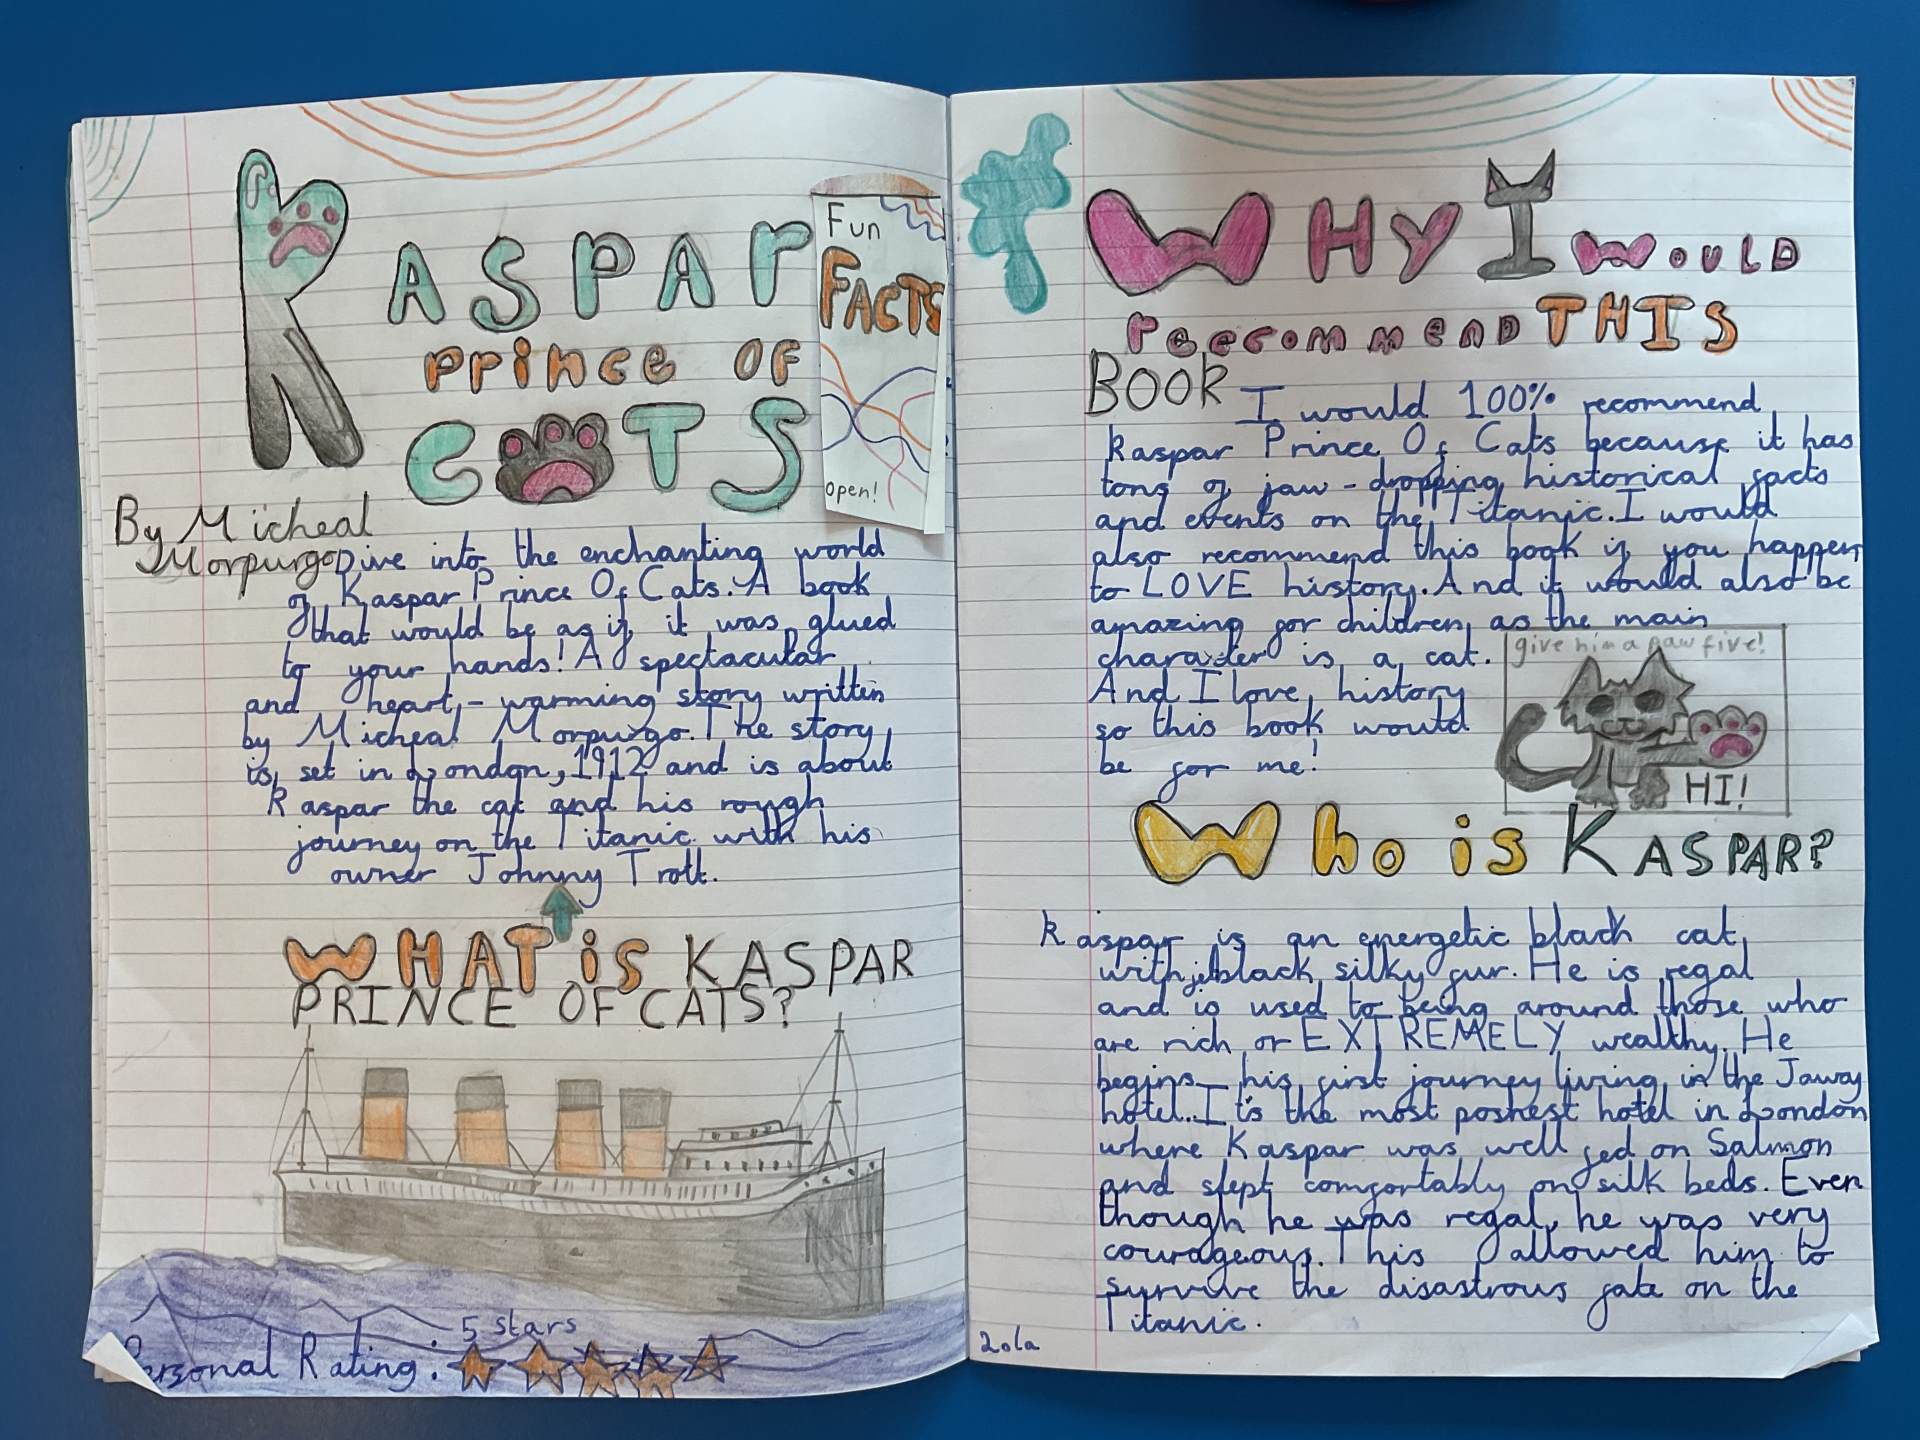 KASPAR
PRINCE OF
CATS
Fun
FACTS
open!
By Micheal
Morpurgo
Dive into the enchanting world
of Kaspar Prince Of Cats. A book
that would be as if it was glued
to your hands! A spectacular
and heart-warming story written
by Micheal Morpurgo. The story
is set in London, 1912 and is about
Kaspar the cat and his rough
journey on the Titanic with his
owner Johnny Trott.
WHAT is KASPAR
PRINCE OF CATS?
5 stars
Personal Rating:
WHY I WOULD
recommend THIS
BOOK
I would 100% recommend
Kaspar Prince Of Cats because it has
tons of jaw-dropping historical facts
and events on the Titanic. I would
also recommend this book if you happen
to LOVE history. And it would also be
amazing for children as the main
character is a cat.
And I love history
so this book would
be for me!
give him a paw five!
HI!
Who is KASPAR?
Kaspar is an energetic black cat,
with black silky fur. He is regal
and is used to being around those who
are rich or EXTREMELY wealthy. He
begins his first journey living in the
hotel. It's the most poshest hotel in London
where Kaspar was well fed on Salmon
and slept comfortably on silk beds. Even
though he was regal, he was very
courageous. This allowed him to
survive the disastrous fate on the
Titanic.
Lola